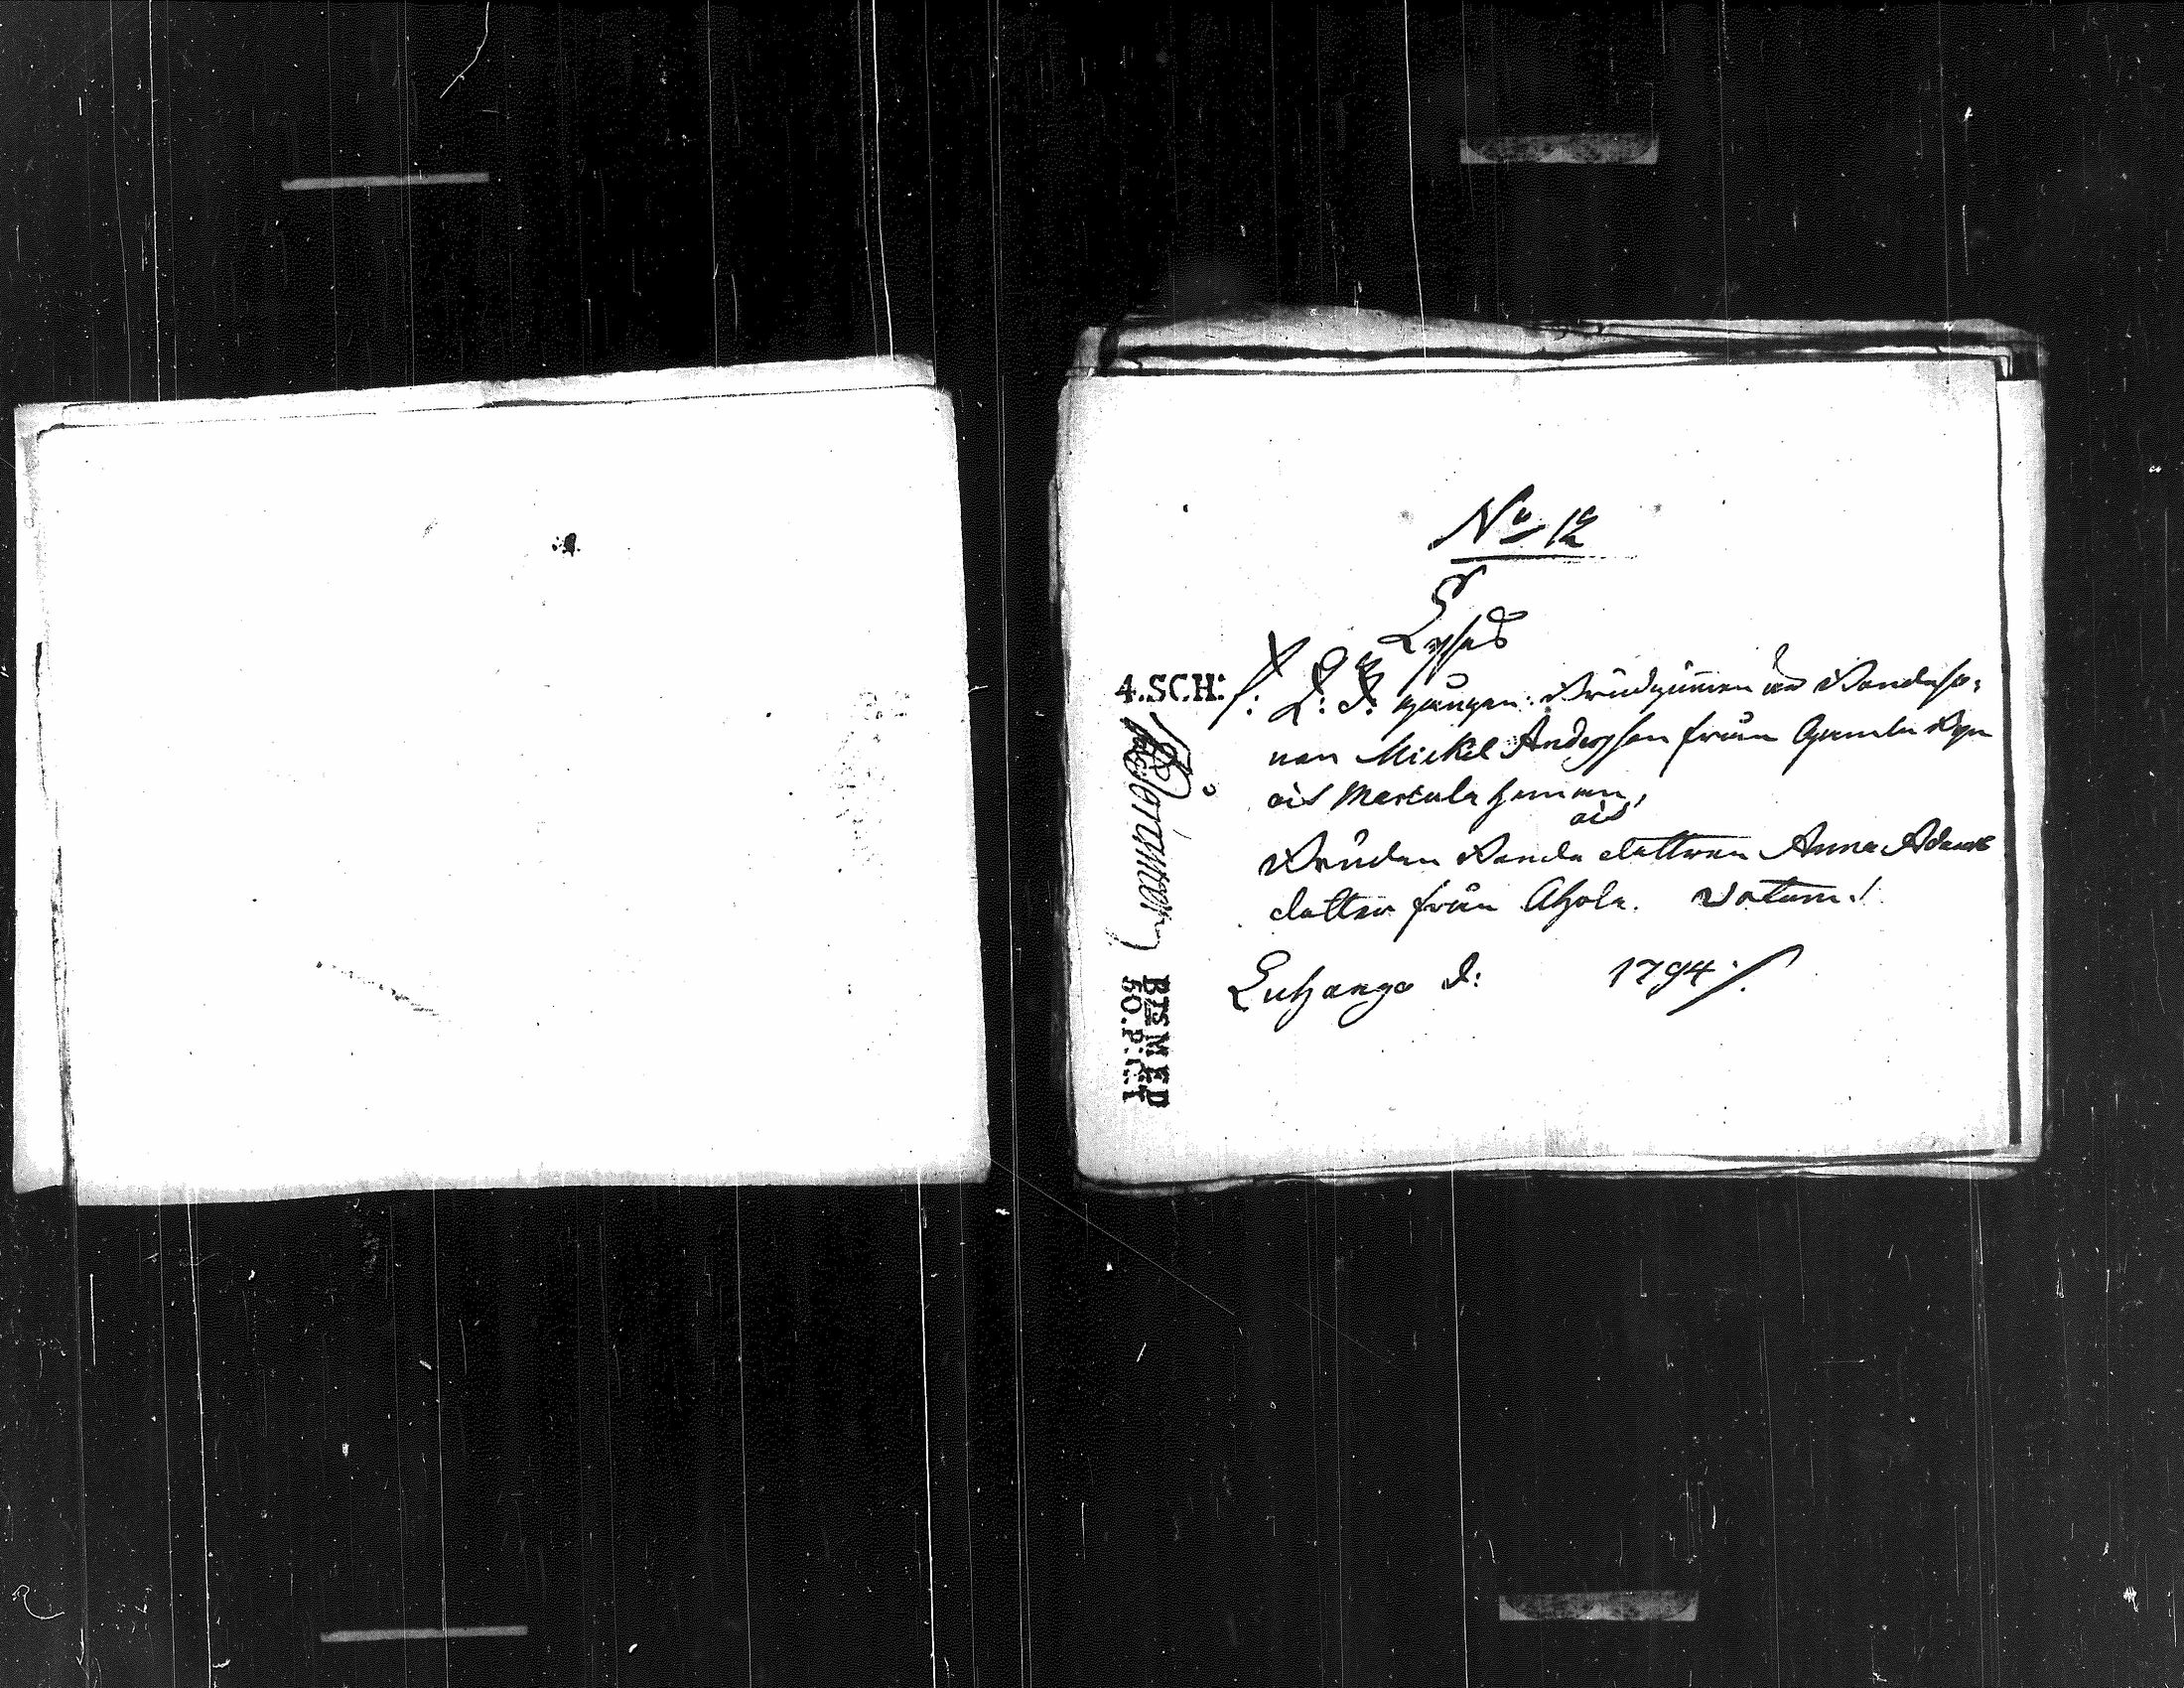 No 12
Lyses
4.SCH:
/: 2: d: gången: Brudgummen är Bondeso-
nen Mickel Andersson från Gamla Byn
och Martula hemman,
och
Bruden Bonde dottren Anna Adams
dotter från Ahola. Datum /.
Luhango d: 1794 /.
BTSMED
50.P:CT